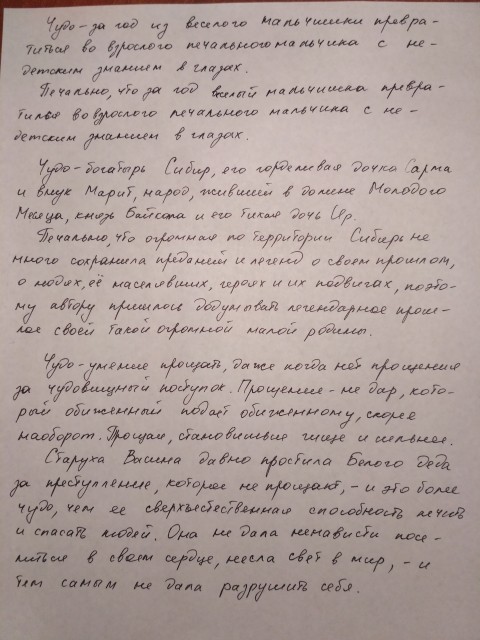 Чудо-за год из веселого мальчишки превра-
титься во взрослого печального мальчика с не-
детским знанием в глазах.
Печально, что за год веселый мальчишка превра-
тился во взрослого печального мальчика с не-
детским знанием в глазах.
Чудо-богатырь Сибир, его горделивая дочка Сарма
и внук Марит, народ, живший в долине Молодого
Месяца, князь Байкала и его тихая дочь Ияр.
Печально, что огромная по территории Сибирь не
много сохранила преданий и легенд о своем прошлом,
о людях, её населявших, героях и их подвигах, поэто-
му автору пришлось додумывать легендарное прош-
лое своей такой огромной малой родины.
Чудо-умение прощать, даже когда нет прощения
за чудовищный поступок. Прощение - не дар, кото-
рый обиженный подает обиженному, скорее
наоборот. Прощая, становишься чище и сильнее.
Старуха Васина давно простила Белого Деда
за преступление, которое не прощают, - и это более
чудо, чем ее сверхъестественная способность лечить
и спасать людей. Она не дала ненависти посе-
литься в своем сердце, несла свет в мир, - и
тем самым не дала разрушить себя.